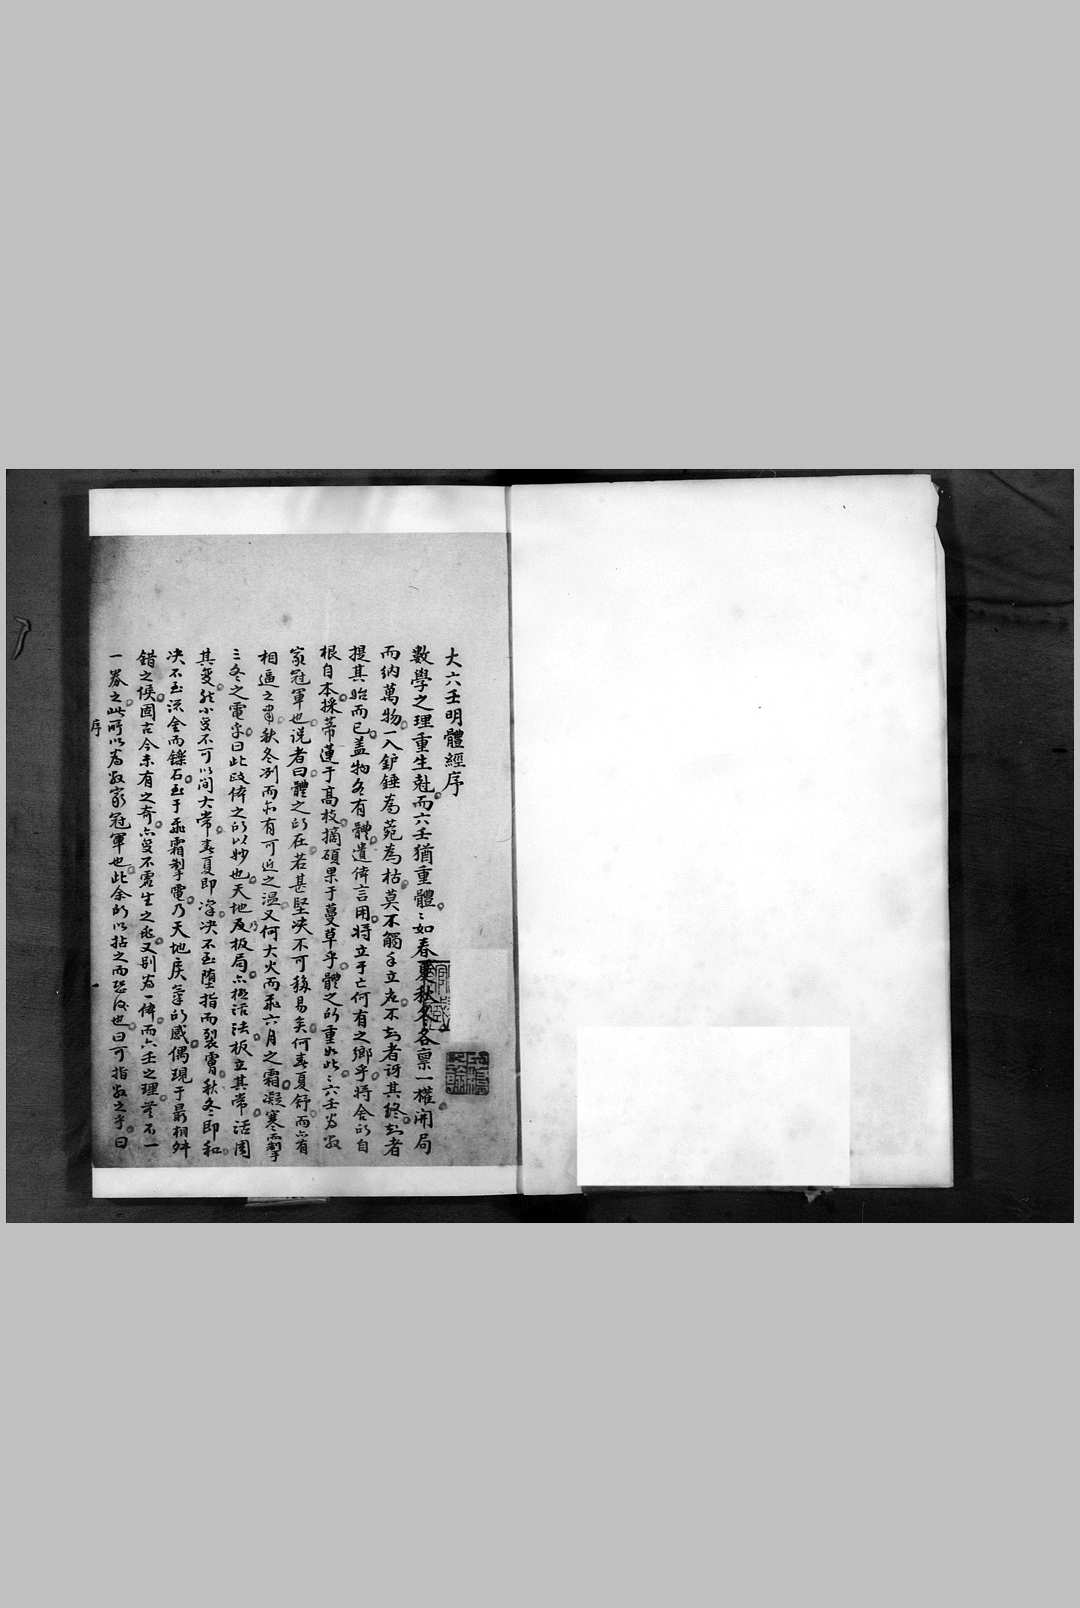 大六壬明體經序
數學之理重生尅而六壬猶重體〻如春夏秋冬各禀一權開局
而納萬物一入鈩錘為菀為枯莫不觸手立應不知者訝其終知者
提其始而已盖物各有體遺体言用將立于亡何有之鄉乎將舍的自
根自本採蒂蓮于高枝摘碩果于蔓草乎體之所重如此〻六壬為数
家冠軍也説者曰體之所在若甚堅决不可移易矣何春夏舒而亦有
相逼之肅秋冬冽而亦有可近之温又何大火而飛六月之霜凝寒而掣
三冬之電乎曰此政体之所以妙也天地乃板局亦極活法板立其常活圓
其變然小變不可以間大常春夏即凓决不至堕指而裂膚秋冬即和
决不至流金而鑠石至于飛霜掣電乃天地戾氣的感偶現于最相舛
錯之候固古今未有之奇亦變不虚生之應又别為一体而六壬之理莫不一
一蔡之此所以為数家冠軍也此余所以拈之而恐後也曰可指数之乎曰
序